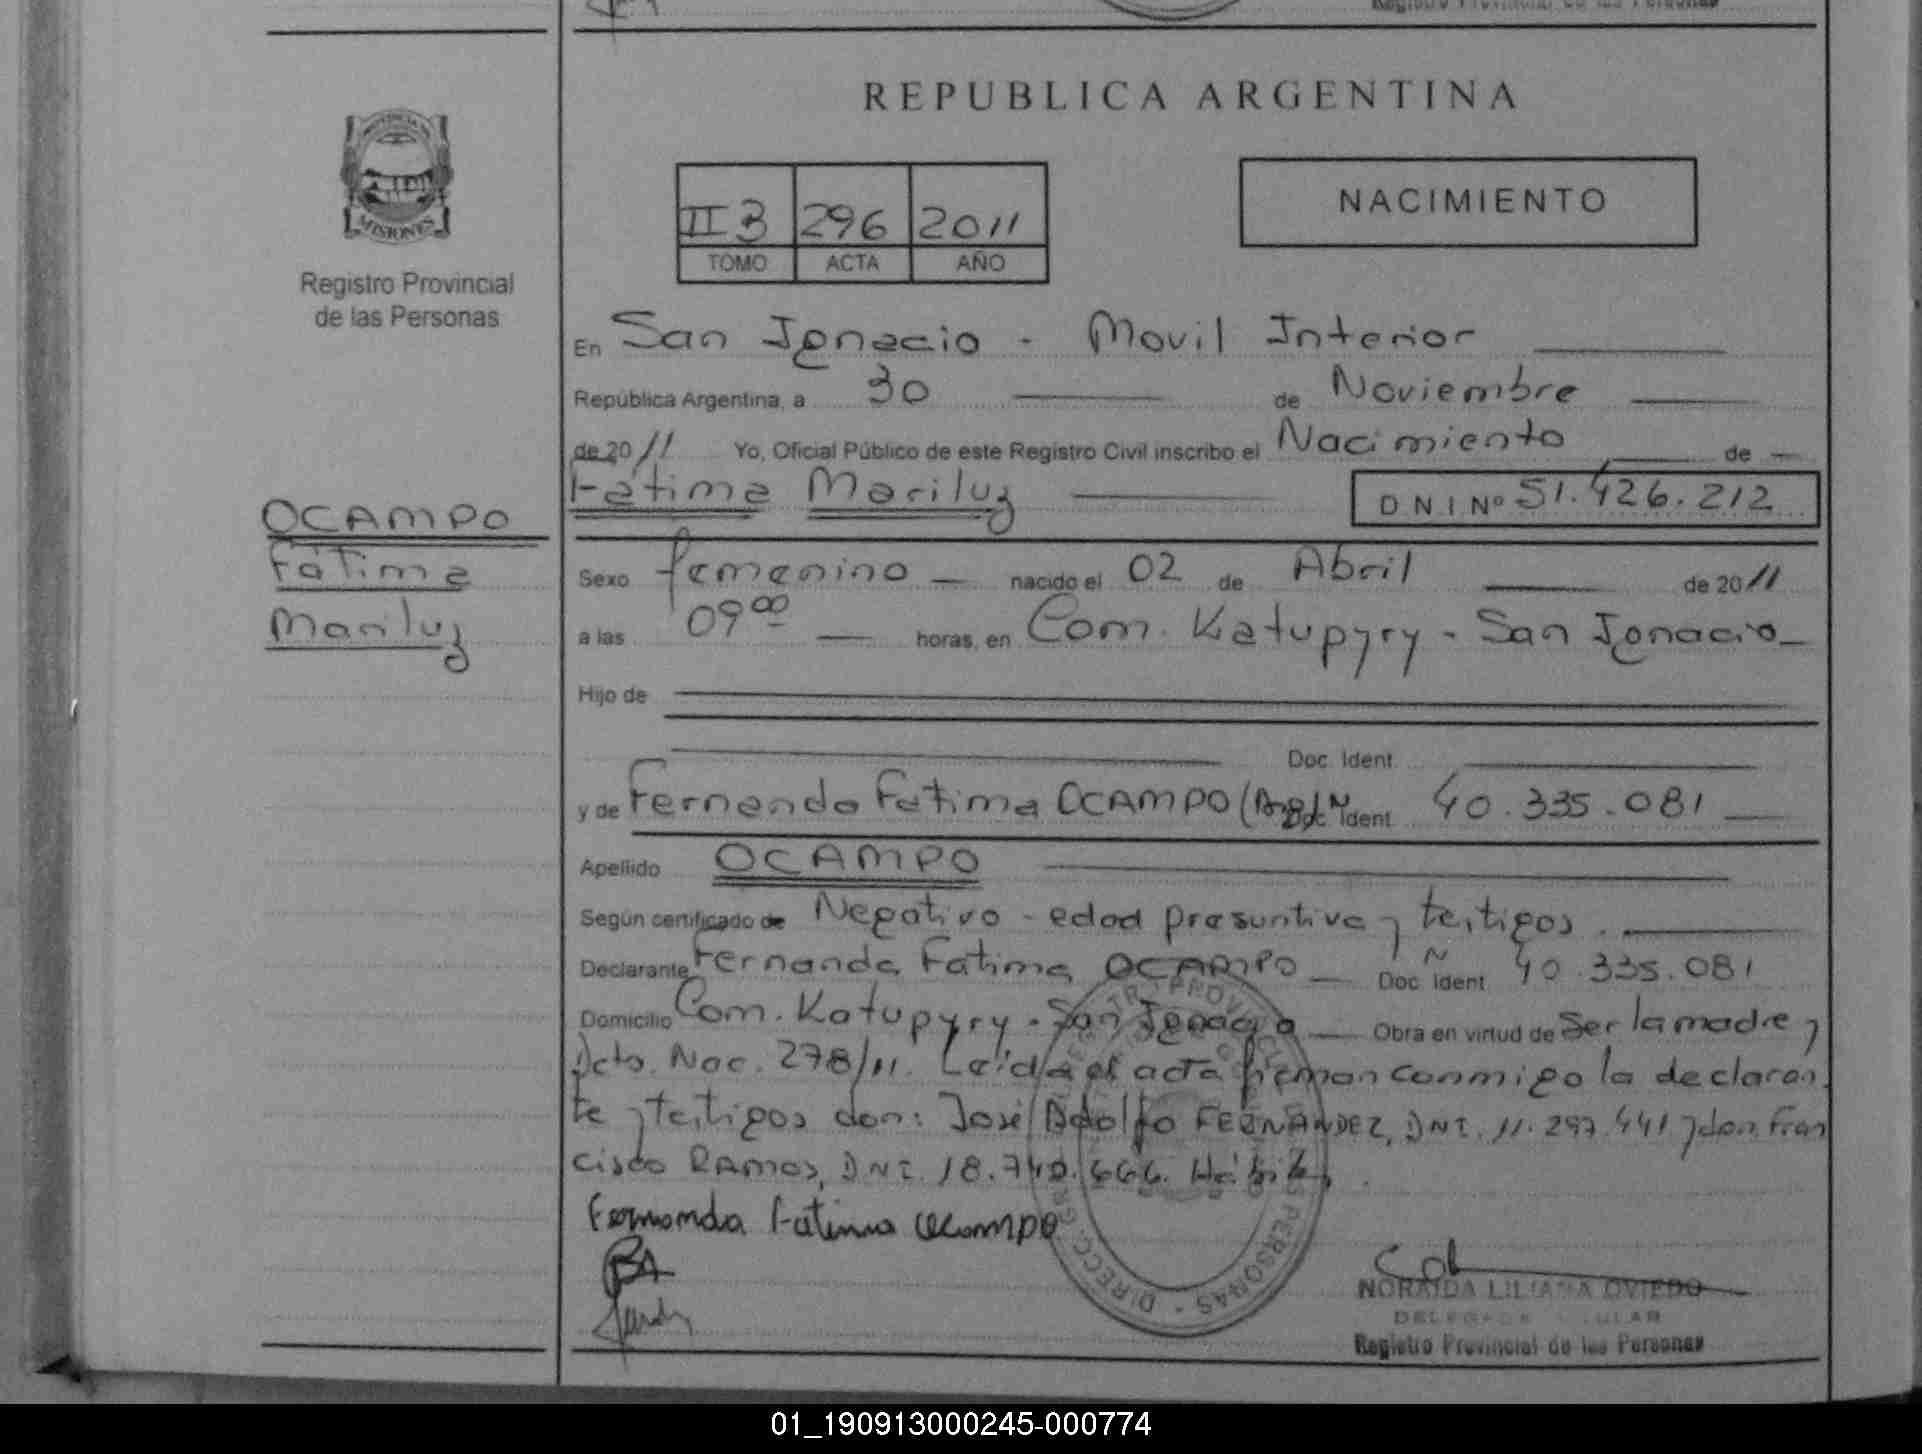 Registro Provincial de las Personas
REPUBLICA ARGENTINA
PROVINCIA DE
MISIONES
Registro Provincial
de las Personas
II 3 296 2011
TOMO ACTA AÑO
NACIMIENTO
En San Ignacio - Movil Interior
República Argentina, a 30 de Noviembre
de 2011 Yo, Oficial Público de este Registro Civil inscribo el Nacimiento de
Fatima Mariluz D N I Nº 51.426.212
OCAMPO
Fátima
Mariluz
Sexo femenino nacido el 02 de Abril de 2011
a las 09 00 horas, en Com. Katupyry - San Ignacio
Hijo de
Doc. Ident.
y de Fernanda Fatima OCAMPO (Arg) Doc. Ident. N 40.335.081
Apellido OCAMPO
Según certificado de Negativo - edad presuntiva y testigos.
Declarante Fernanda Fatima OCAMPO Doc. Ident. N 40.335.081
Domicilio Com. Katupyry - San Ignacio Obra en virtud de Ser la madre y
Dcto. Nac. 278/11. Leída el acta firman conmigo la declaran
te y testigos don: José Adolfo FERNANDEZ, DNI. 11.297.441 y don Fran
cisco RAMOS, DNI. 18.740.666. Hábil,
Fernanda Fatima Ocampo
NORAIDA LILIANA OVIEDO
DELEGADA TITULAR
Registro Provincial de las Personas
DIRECC. GRAL. REGISTRO PROVINCIAL DE LAS PERSONAS
01_190913000245-000774